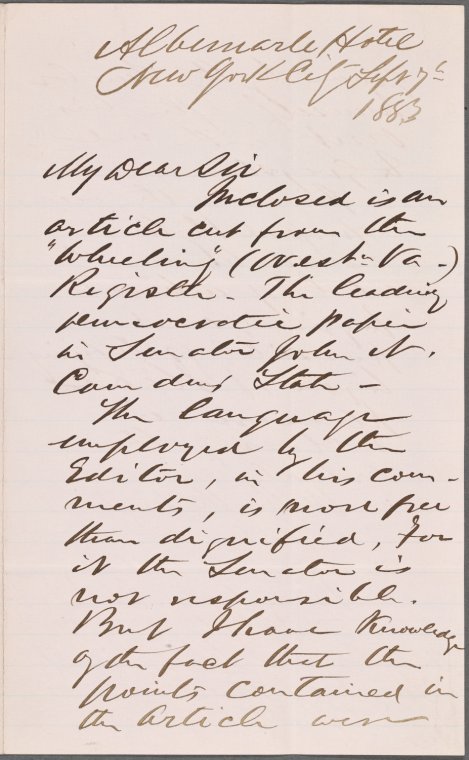 Albemarle Hotel
New York City Sept 7th
1883
My Dear Sir
Inclosed is an
article cut from the
"Wheeling" (West Va.)
Register - The leading
Democratic paper
in Senator John N.
Camdens State -
The language
employed by the
Editor, in his com-
ments, is more free
than dignified, For
it the Senator is
not responsible.
But I have Knowledge
of the fact that the
points contained in
the article were